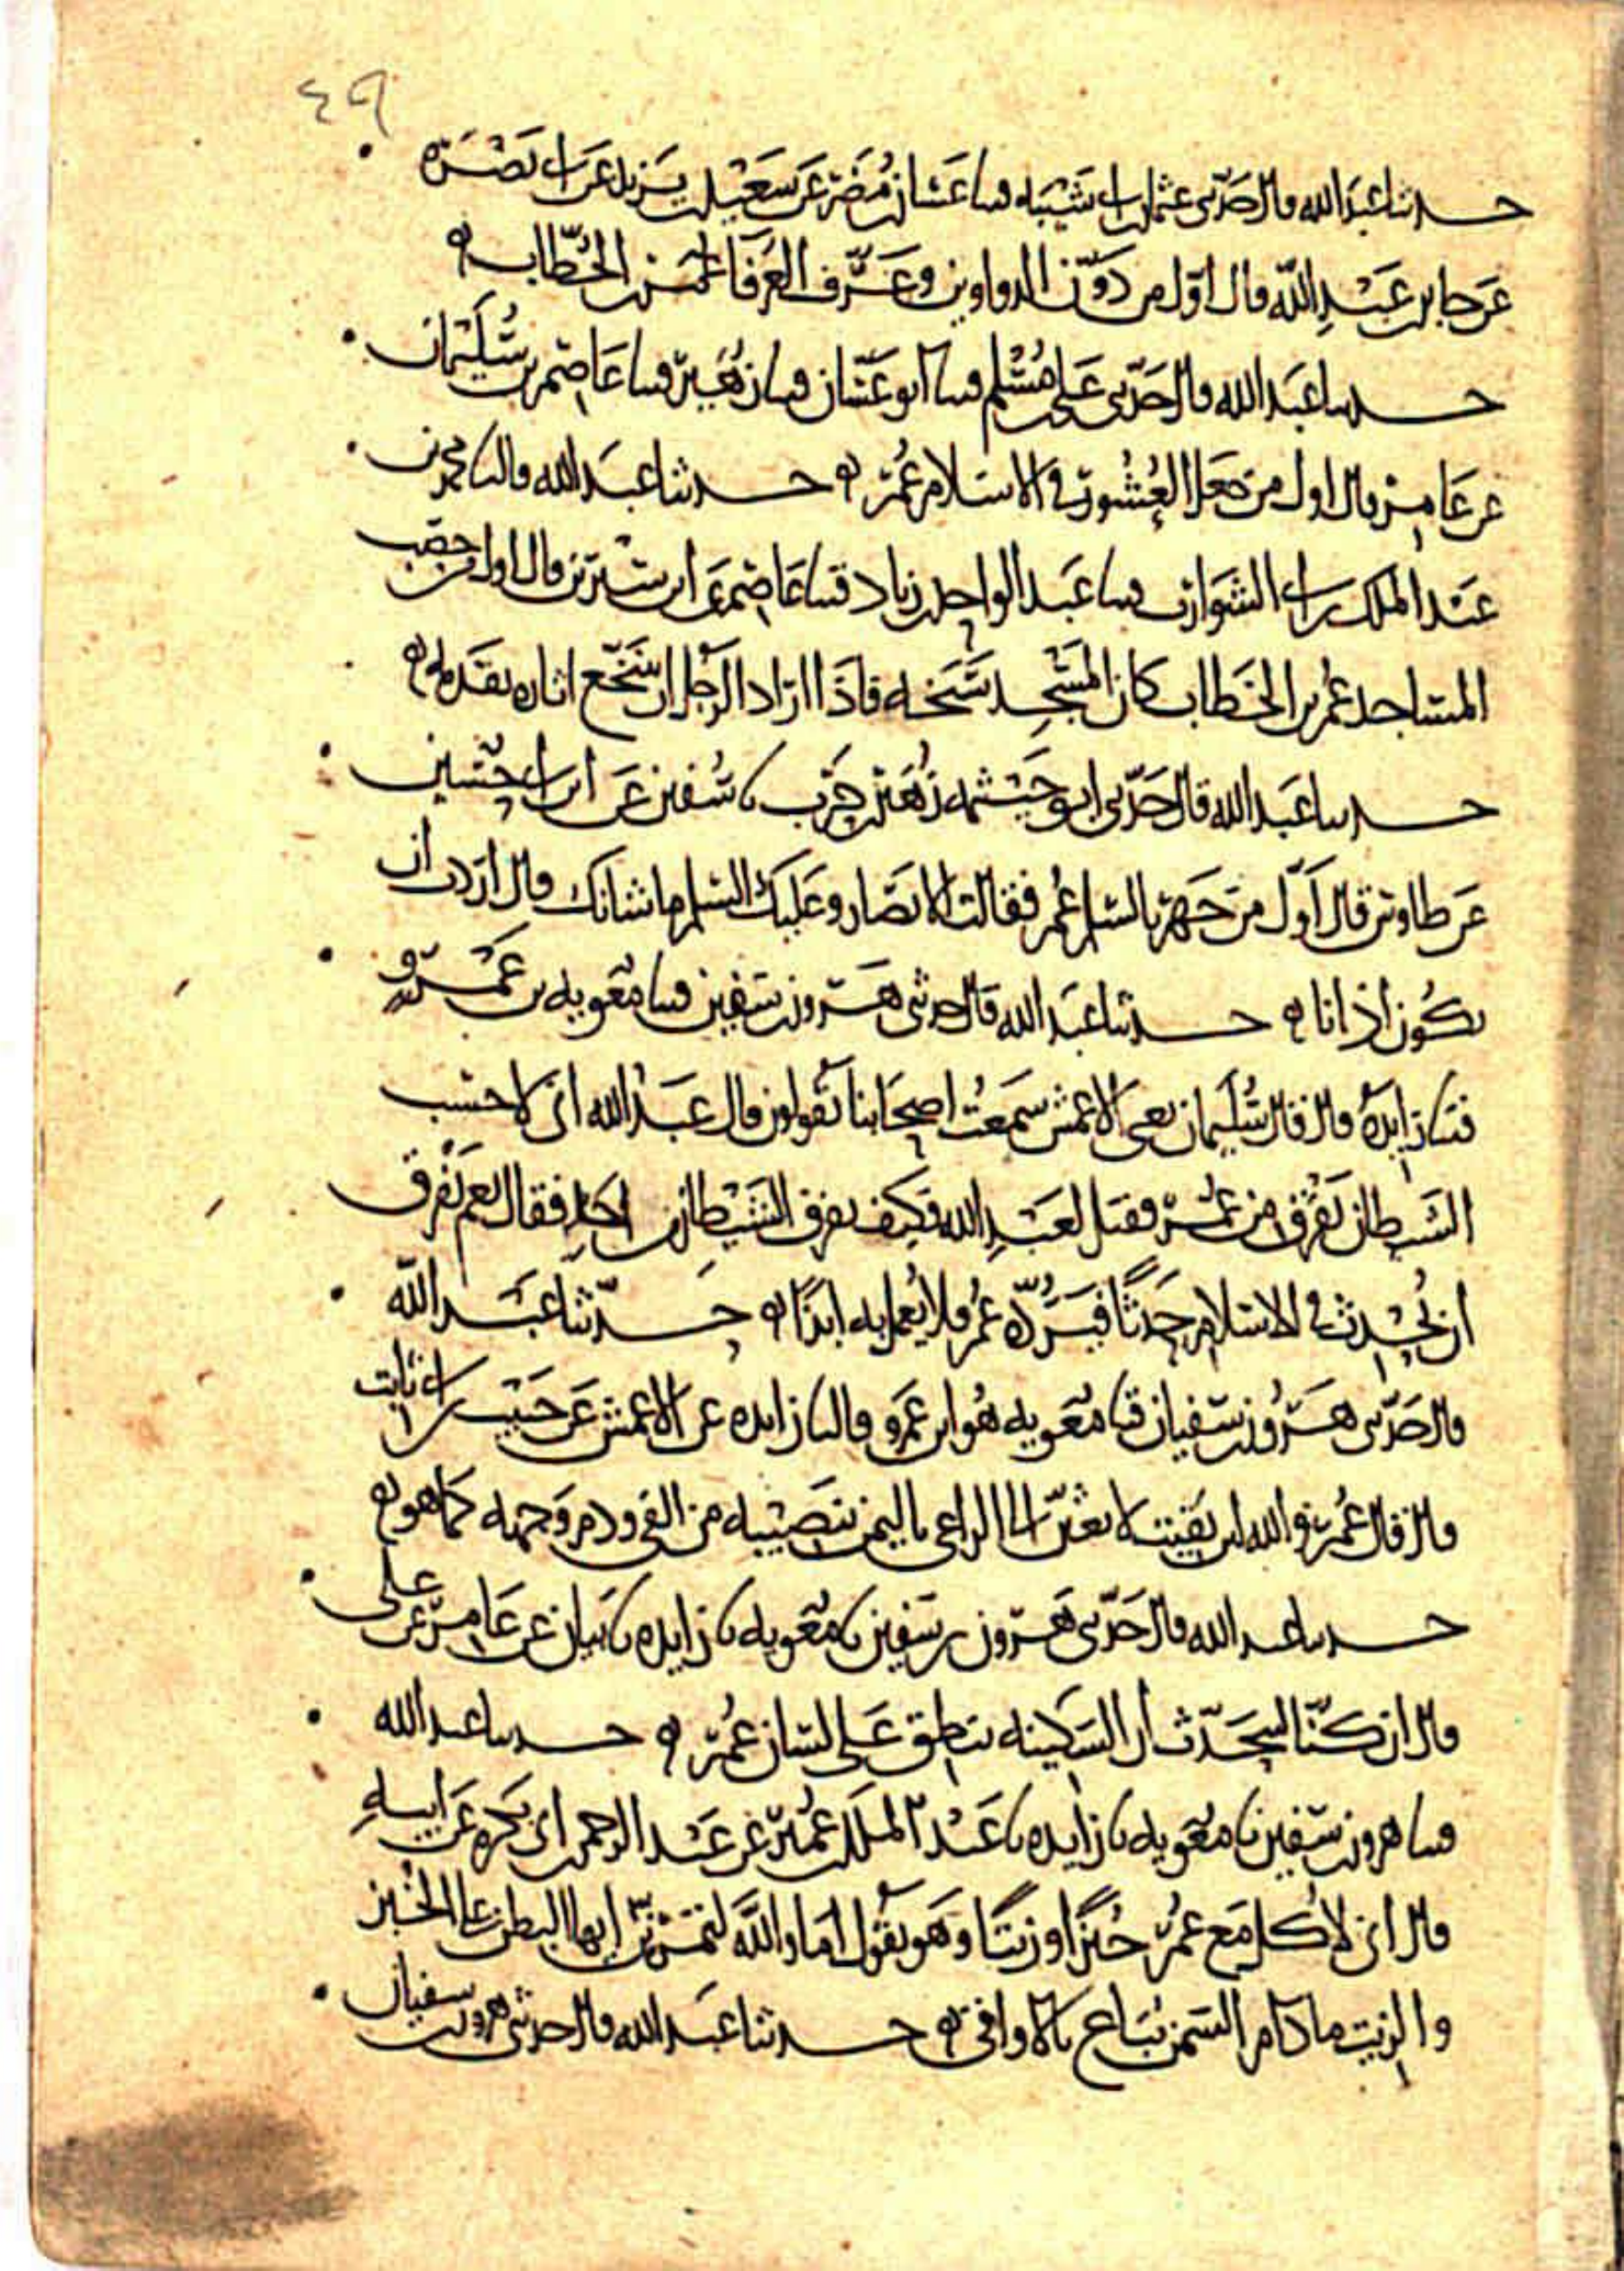 ٤٩
حدثنا عبد الله قال حدثني عثمان بن ابي شيبه قثنا غسان بن مضر عن سعيد بن يزيد عن ابي نضره
عن جابر بن عبد الله قال اول من دون الدواوين وعرف العرفا عمر بن الخطاب
حدثنا عبد الله قال حدثني علي بن مسلم قثنا ابو غسان قثنا زهير قثنا عاصم بن سليمان
عن عامر قال اول من جعل العشور في الاسلام عمر حدثنا عبد الله قال نا محمد بن
عبد الملك بن ابي الشوارب قثنا عبد الواحد بن زياد قثنا عاصم عن ابن سيرين قال اول من حصب
المساجد عمر بن الخطاب كان المسجد سبخه فاذا اراد الرجل ان يتنخع اثاره بقدمه
حدثنا عبد الله قال حدثني ابو خيثمه زهير بن حرب نا سفين عن ابن ابي حسين
عن طاوس قال اول من جهر بالسلم عمر فقالت الانصار وعليك السلم ما شانك قال اردت ان
يكون اذانا حدثنا عبد الله قال حدثني هرون بن سفين قثنا معويه بن عمرو
قثنا زايده قال قال سليمان يعني الاعمش سمعت اصحابنا يقولون قال عبد الله اني لاحسب
الشيطان يفرق من عمر فقيل لعبد الله فكيف يفرق الشيطان من احد فقال نعم يفرق
ان يحدث في الاسلام حدثا فيرده عمر فلا يعمل به ابدا حدثنا عبد الله
قال حدثني هرون بن سفيان قثنا معويه هو ابن عمرو قال نا زايده عن الاعمش عن حبيب بن ابي ثابت
قال قال عمر والله لئن بقيت لابعثن الى الراعي باليمن بنصيبه من الفي ودم وجهه كما هو
حدثنا عبد الله قال حدثني هرون بن سفين نا معويه نا زايده نا بيان عن عامر عن علي
قال ان كنا لنتحدث ان السكينه تنطق على لسان عمر حدثنا عبد الله
قثنا هرون بن سفين نا معويه نا زايده نا عبد الملك بن عمير عن عبد الرحمن بن ابي بكره عن ابيه
قال اني لاكل مع عمر خبزا وزيتا وهو يقول اما والله لتمرنن ايها البطن على الخبز
والزيت ما دام السمن يباع بالاواقي حدثنا عبد الله قال حدثني هرون بن سفيان